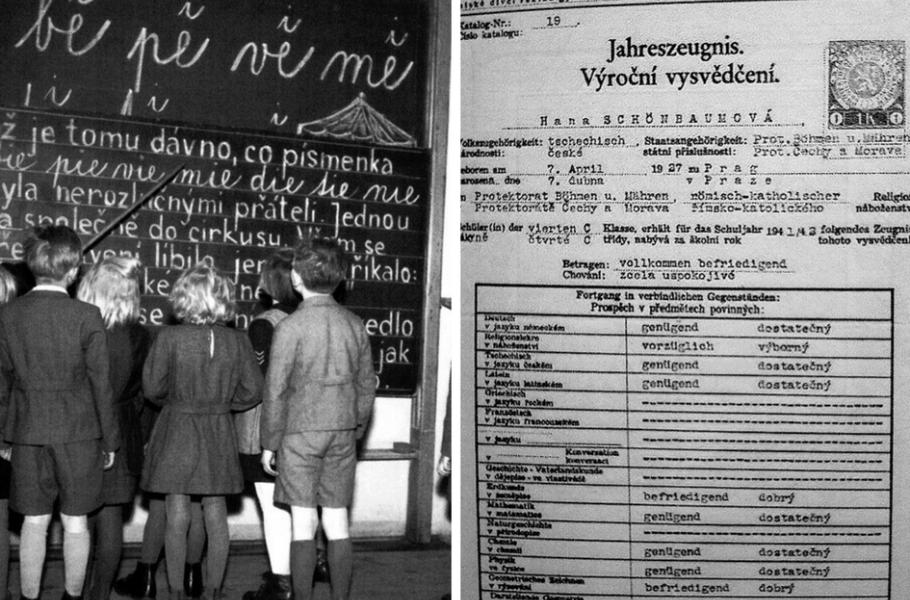 i i i
bě pě vě mě
i i i i
ž je tomu dávno, co písmenka
pie vie mie die tie nie
yla nerozlučnými přáteli. Jednou
a společně do cirkusu. se
líbilo říkalo:
se edlo
jak
Katalog-Nr.: 19
Číslo katalogu:
Jahreszeugnis.
Výroční vysvědčení.
1 1K 1
Hana SCHÖNBAUMOVÁ
Volkszugehörigkeit: tschechisch, Staatsangehörigkeit: Prot. Böhmen u. Mähren
národnosti: české státní příslušnosti: Prot. Čechy a Morava
geboren am 7. April 1927 zu Prag
narozená dne 7. dubna v Praze
in Protektorat Böhmen u. Mähren, römisch-katholischer Religio
Protektorátě Čechy a Morava římsko-katolického náboženstv
Schüler(in) der vierten C Klasse, erhält für das Schuljahr 1941/42 folgendes Zeugni
čtvrté C třídy, nabývá za školní rok tohoto vysvědčen
Betragen: vollkommen befriedigend
Chování: zcela uspokojivé
Fortgang in verbindlichen Gegenständen:
Prospěch v předmětech povinných:
Deutsch
v jazyku německém genügend dostatečný
Religionslehre
v náboženství vorzüglich výborný
Tschechisch
v jazyku českém genügend dostatečný
Latein
v jazyku latinském genügend dostatečný
Griechisch
v jazyku řeckém
Französisch
v jazyku francouzském
v jazyku
Konversation
v konversaci
Geschichte - Vaterlandskunde
v dějepise - ve vlastivědě
Erdkunde
v zeměpise befriedigend dobrý
Mathematik
v matematice genügend dostatečný
Naturgeschichte
v přírodopise
Chemie
v chemii genügend dostatečný
Physik
ve fysice genügend dostatečný
Geometrisches Zeichnen
v rýsování befriedigend dobrý
Darstellende Geometrie